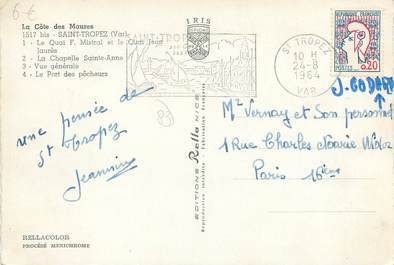 6-€
La Côte des Maures
1517 bis - SAINT-TROPEZ (Var)
1 - Le Quai F. Mistral et le Quai Jean
Jaurès
2 - La Chapelle Sainte-Anne
3 - Vue générale
4 - Le Port des pêcheurs
IRIS
SAINT-TROPEZ
ST TROPEZ
10 H
24-8
1964
VAR
REPUBLIQUE FRANCAISE
POSTES
0,20
J. GODARD
83
une pensée de
St Tropez
Jeannine
EDITIONS Rella NICE
Reproduction interdite - Fabrication Française
Mr Vernay et Son personnel
1 Rue Charles Marie Widor
Paris 16ème
RELLACOLOR
PROCÉDÉ MEXICHROME